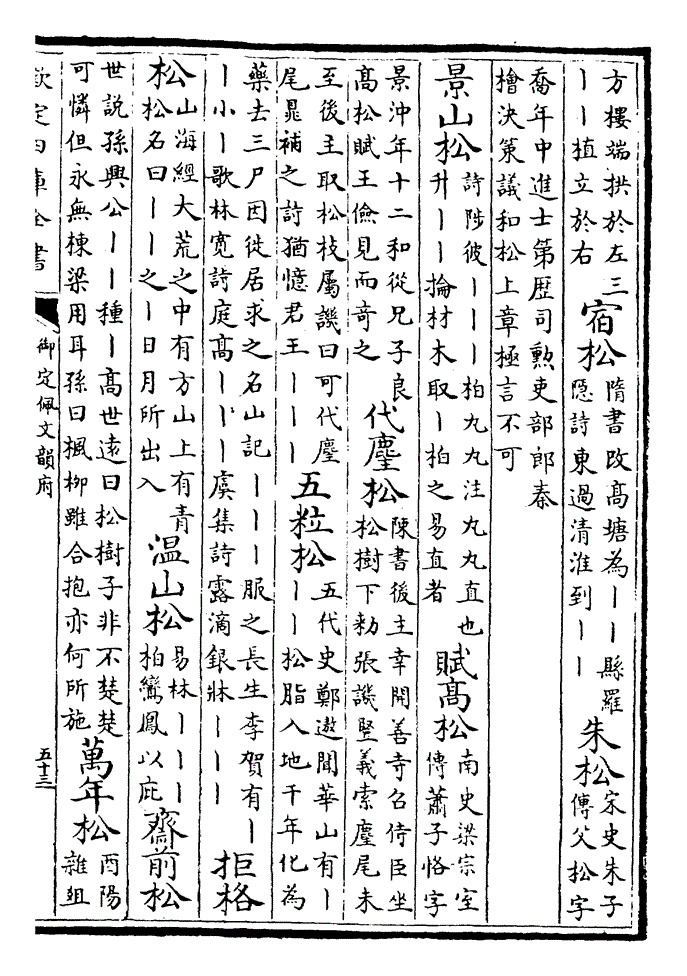 方樓端拱於左三
丨丨植立於右
宿松
隋書改髙塘為丨丨縣羅
隐詩東過清淮到丨丨
朱松
宋史朱子
傳父松字
喬年中進士第歴司勲吏部郎秦
檜決策議和松上章極言不可
景山松
詩陟彼丨丨丨柏丸丸注丸丸直也
升丨丨掄材木取丨柏之易直者
賦髙松
南史梁宗室
傳蕭子恪字
景沖年十二和從兄子良
髙松賦王儉見而竒之
代麈松
陳書後主幸開善寺召侍臣坐
松樹下勅張譏豎義索麈尾未
至後主取松枝屬譏曰可代麈
尾晁補之詩猶憶君王丨丨丨
五粒松
五代史鄭遨聞華山有丨
丨丨松脂入地千年化為
藥去三尸因徙居求之名山記丨丨丨服之長生李賀有丨
丨小丨歌林寛詩庭髙丨丨丨虞集詩露滴銀牀丨丨丨
拒格
松
山海經大荒之中有方山上有青
松名曰丨丨之丨日月所出入
温山松
易林丨丨丨
柏鸞鳳以庇
齋前松
世説孫興公丨丨種丨髙世遠曰松樹子非不楚楚
可憐但永無棟梁用耳孫曰楓柳雖合抱亦何所施
萬年松
酉陽
雜俎
欽定四庫全書
御定佩文韻府
五十三